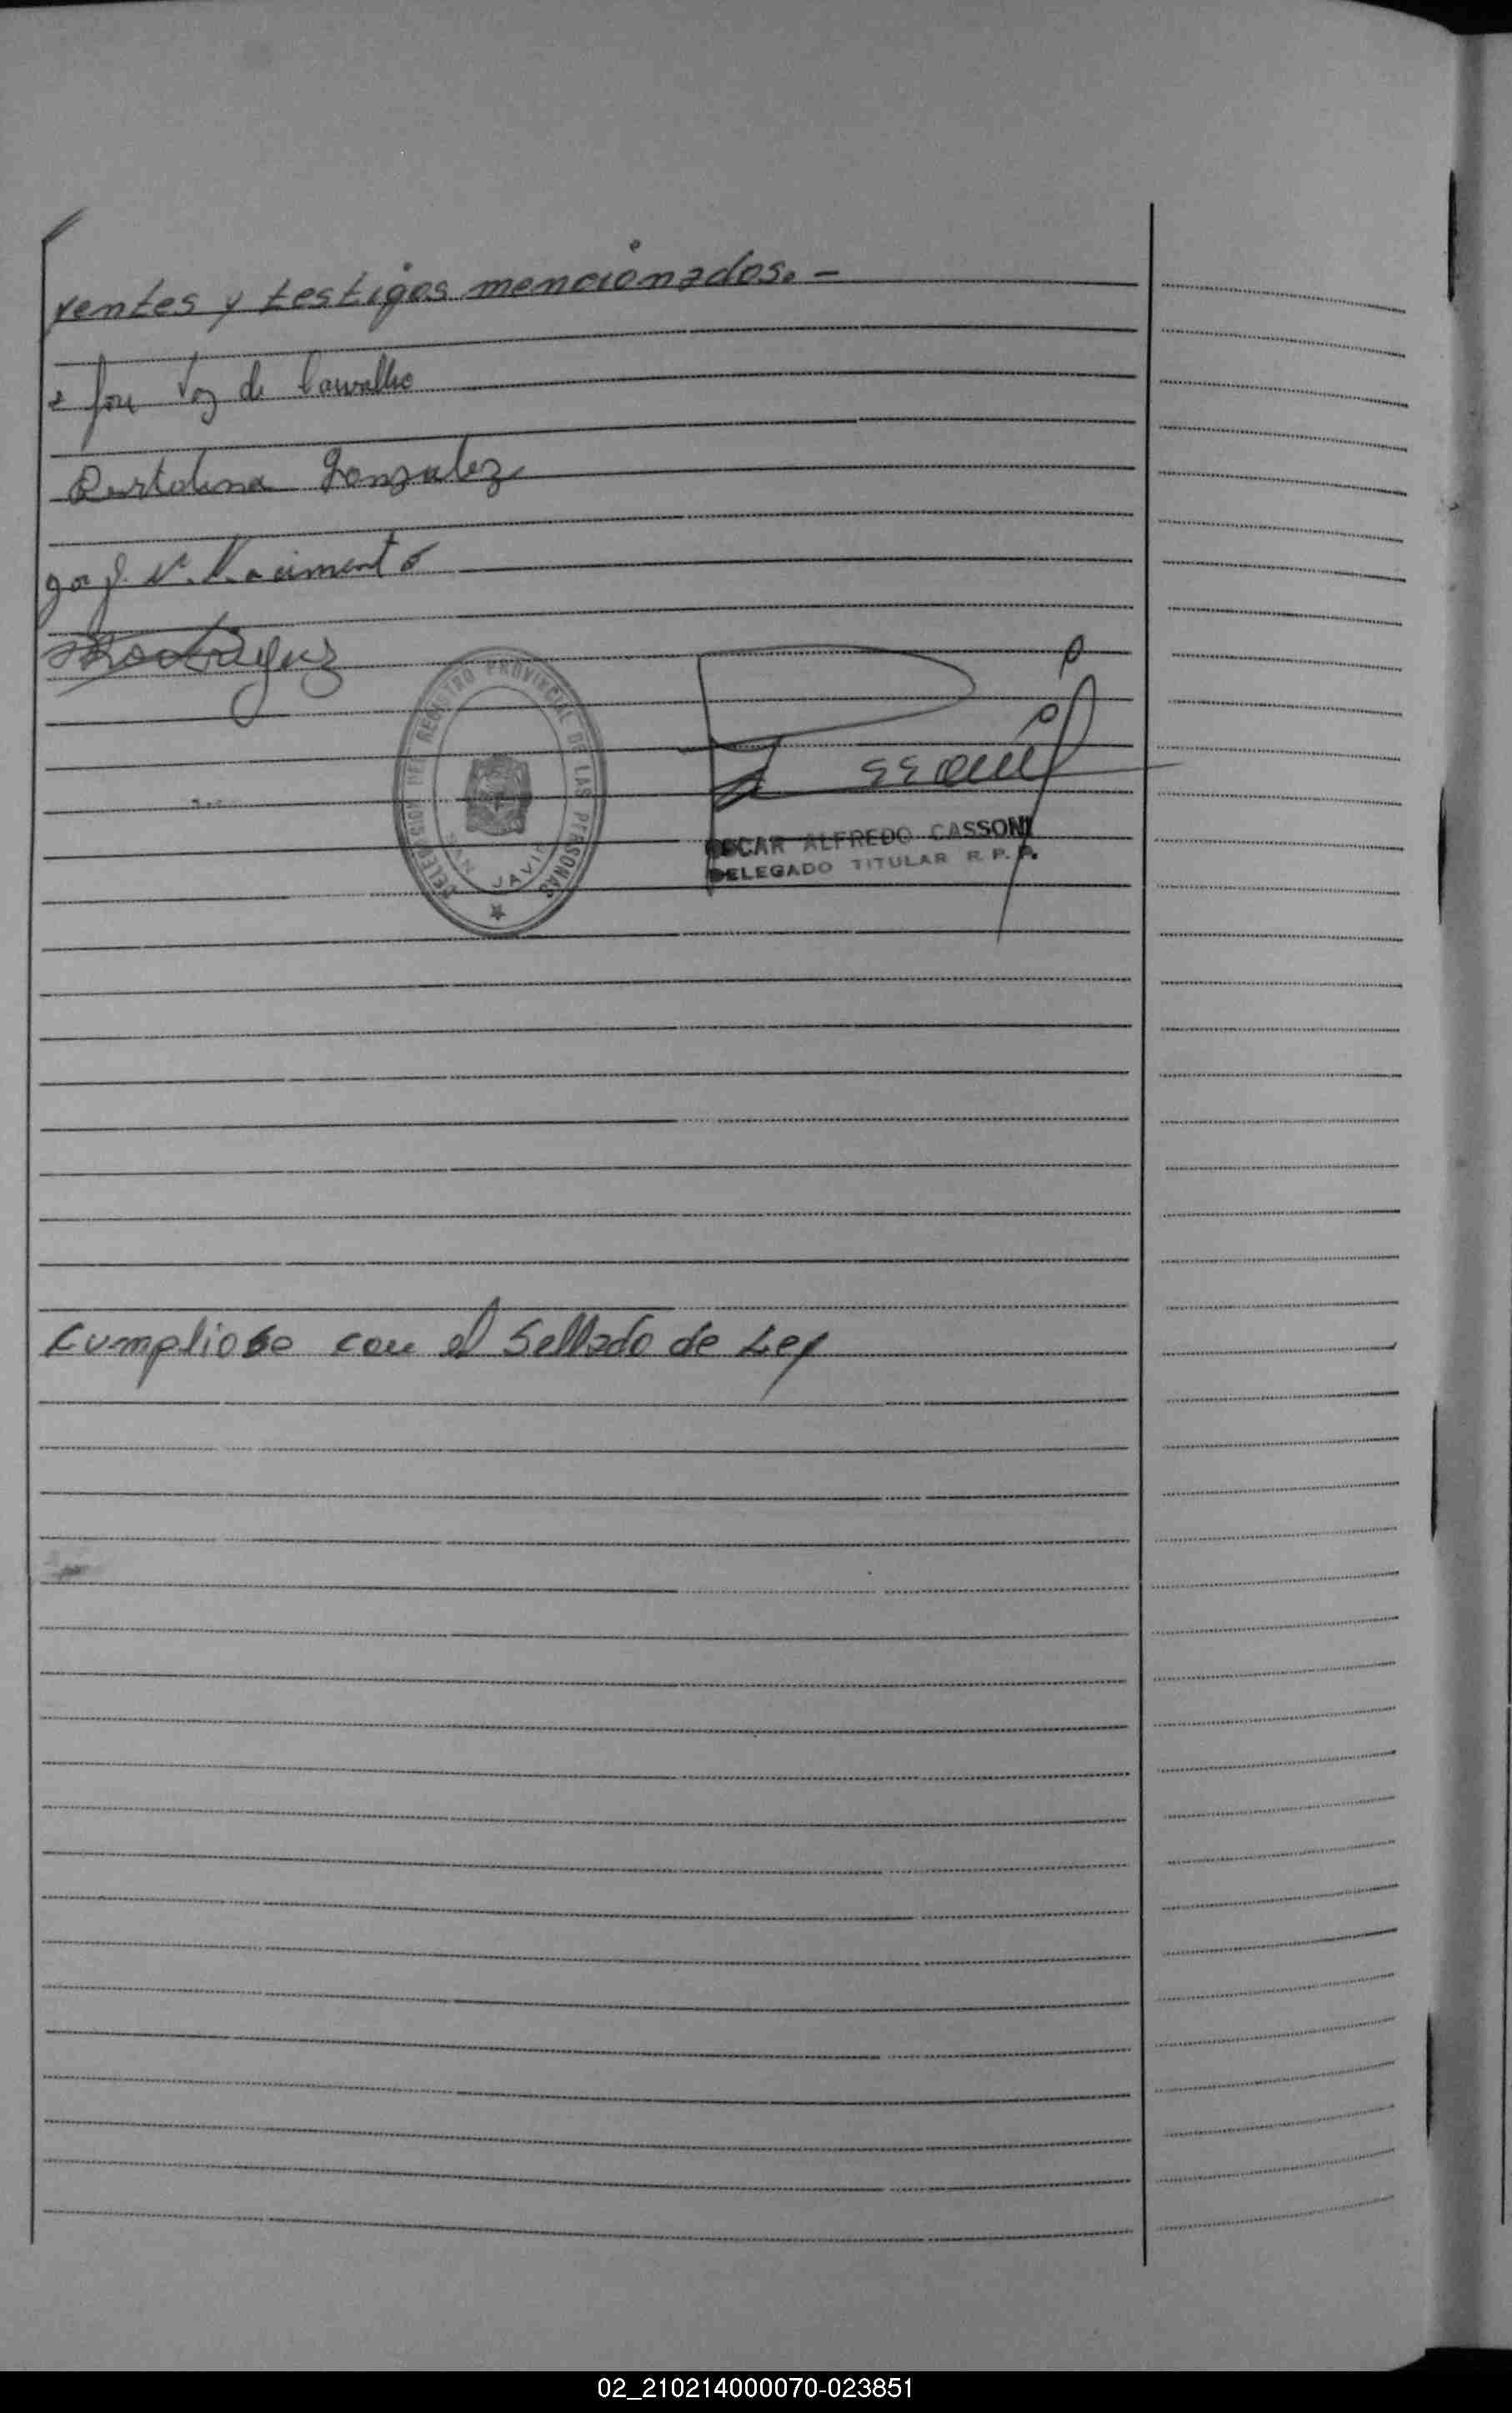 yentes y testigos mencionados. -
Jose Vaz de Carvalho
Bertolina Gonzalez
J. N. Nacimento
Rodriguez
DELEGACION DEL REGISTRO PROVINCIAL DE LAS PERSONAS
SAN JAVIER
OSCAR ALFREDO CASSONI
DELEGADO TITULAR R. P. P.
Cumpliose con el Sellado de Ley
02_210214000070-023851